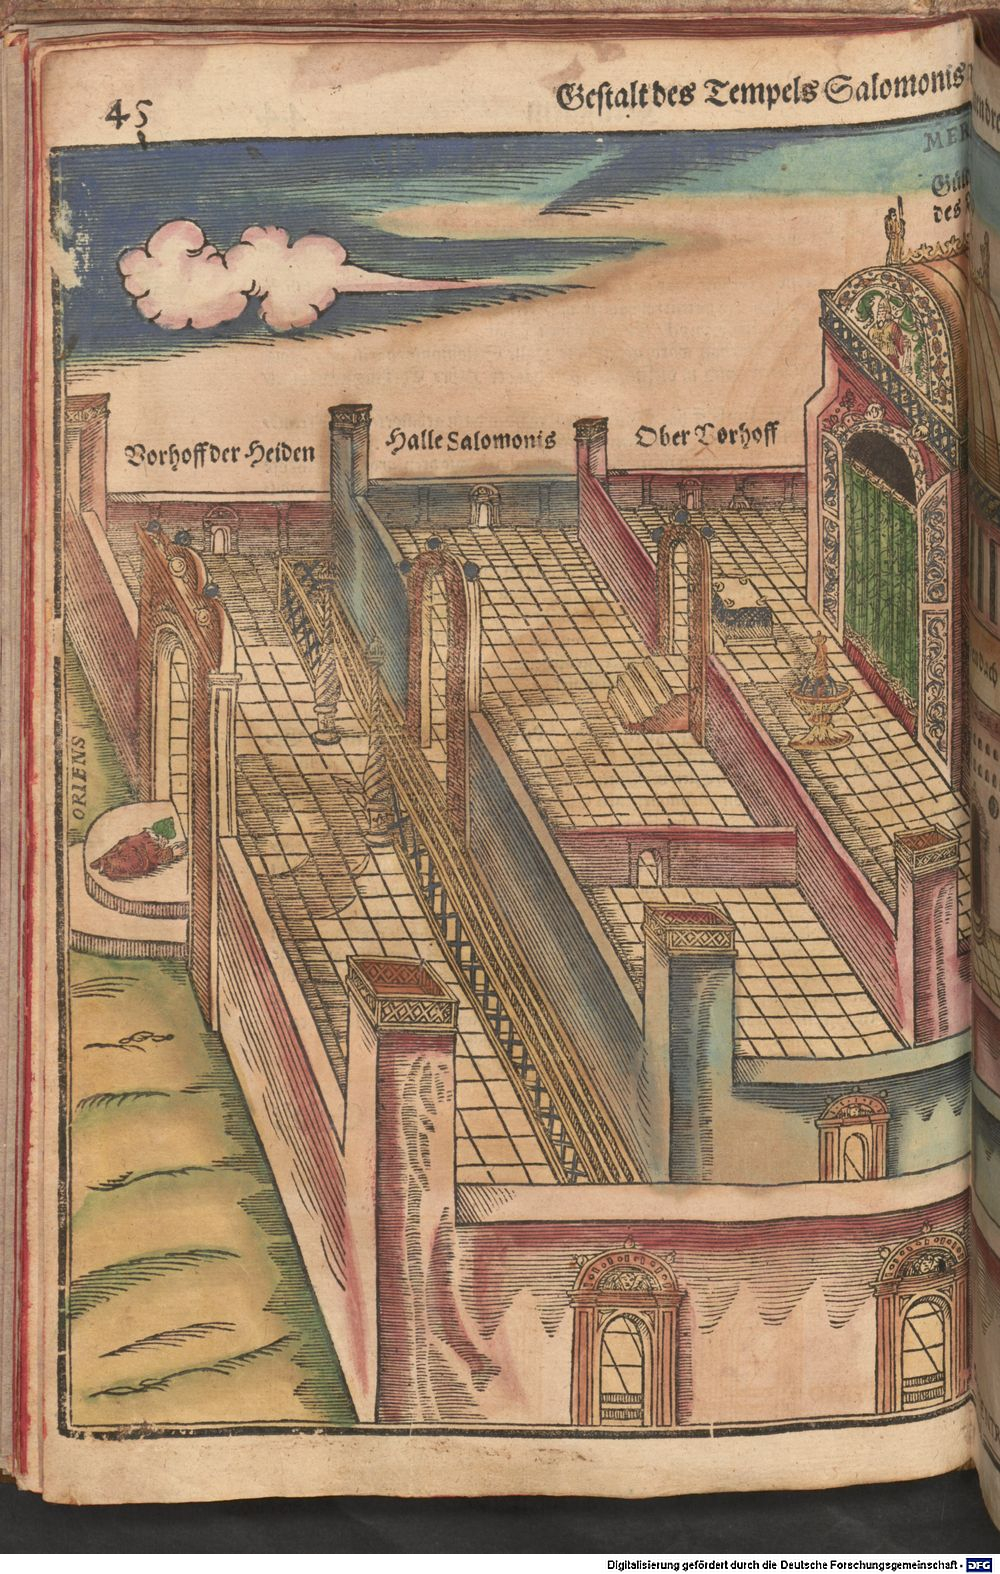 45
Gestalt des Tempels Salomonis
MER
Gül
des
Vorhoff der Heiden
Halle Salomonis
Ober Vorhoff
ORIENS
Digitalisierung gefördert durch die Deutsche Forschungsgemeinschaft - DFG